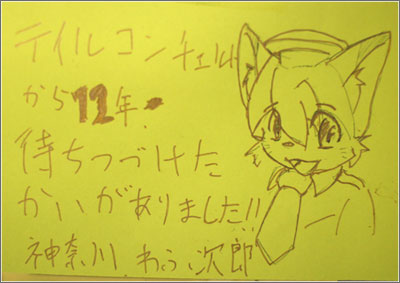 テイルコンチェルト
から12年。
待ちつづけた
かいがありました!!
神奈川 わふぃ次郎